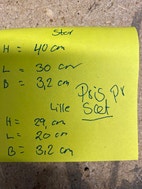 Stor
H = 40 cm
L = 30 cm
B = 3,2 cm
Pris pr
Sæt
Lille
H = 29 cm
L = 20 cm
B = 3,2 cm